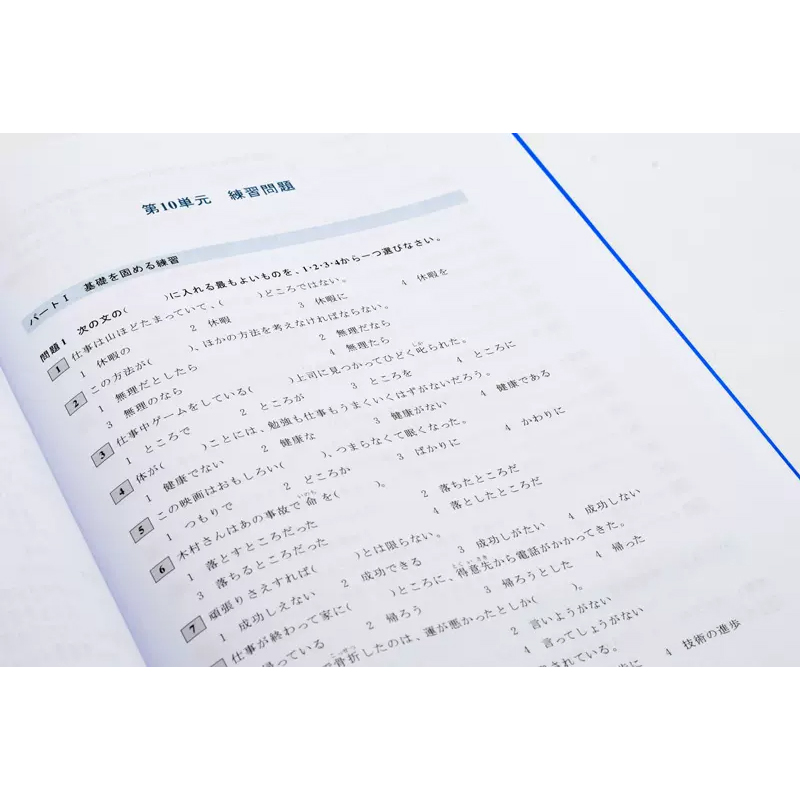 第10単元 練習問題
パートⅠ 基礎を固める練習
問題1 次の文の( )に入れる最もよいものを、1・2・3・4から一つ選びなさい。
1 仕事は山ほどたまっていて、( )どころではない。
1 休暇の 2 休暇 3 休暇に 4 休暇を
2 この方法が( )、ほかの方法を考えなければならない。
1 無理だとしたら 2 無理だなら
3 無理のなら 4 無理たら
3 仕事中ゲームをしている( )上司に見つかってひどく叱られた。
1 ところで 2 ところが 3 ところを 4 ところに
4 体が( )ことには、勉強も仕事もうまくいくはずがないだろう。
1 健康でない 2 健康な 3 健康がない 4 健康である
5 この映画はおもしろい( )、つまらなくて眠くなった。
1 つもりで 2 どころか 3 ばかりに 4 かわりに
6 木村さんはあの事故で命を( )。
1 落とすところだった 2 落ちたところだ
3 落ちるところだった 4 落としたところだ
7 頑張りさえすれば( )とは限らない。
1 成功しえない 2 成功できる 3 成功しがたい 4 成功しない
仕事が終わって家に( )ところに、得意先から電話がかかってきた。
帰っている 2 帰ろう 3 帰ろうとした 4 帰った
骨折したのは、運が悪かったとしか( )。
2 言いようがない
4 言ってしょうがない
されている。
4 技術の進歩